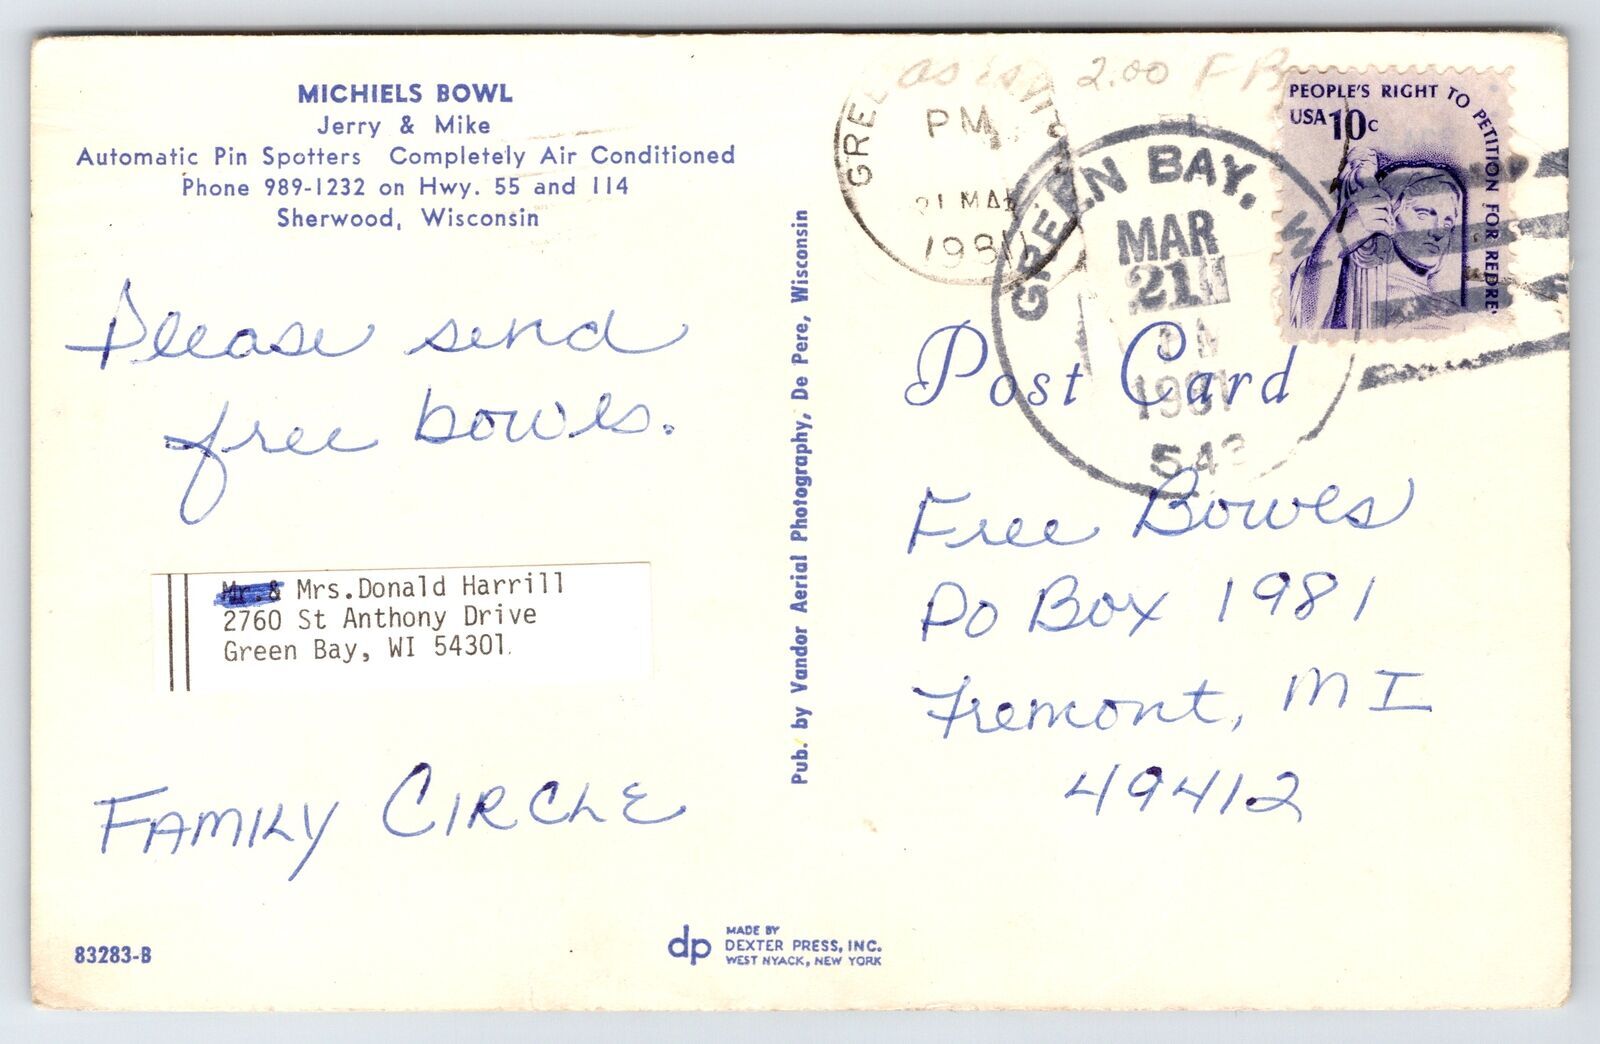 MICHIELS BOWL
Jerry & Mike
Automatic Pin Spotters Completely Air Conditioned
Phone 989-1232 on Hwy. 55 and 114
Sherwood, Wisconsin
Please send
free bowls.
Mr. & Mrs. Donald Harrill
2760 St Anthony Drive
Green Bay, WI 54301
FAMILY CIRCLE
83283-B
dp
MADE BY
DEXTER PRESS, INC.
WEST NYACK, NEW YORK
Pub. by Vandor Aerial Photography, De Pere, Wisconsin
as is 2.00 F
GREE
PM
21 MAR
1981
GREEN BAY, WI
MAR
21
1981
543
PEOPLE'S RIGHT TO PETITION FOR REDRE
USA 10c
Post Card
Free Bowls
PO Box 1981
Fremont, MI
49412